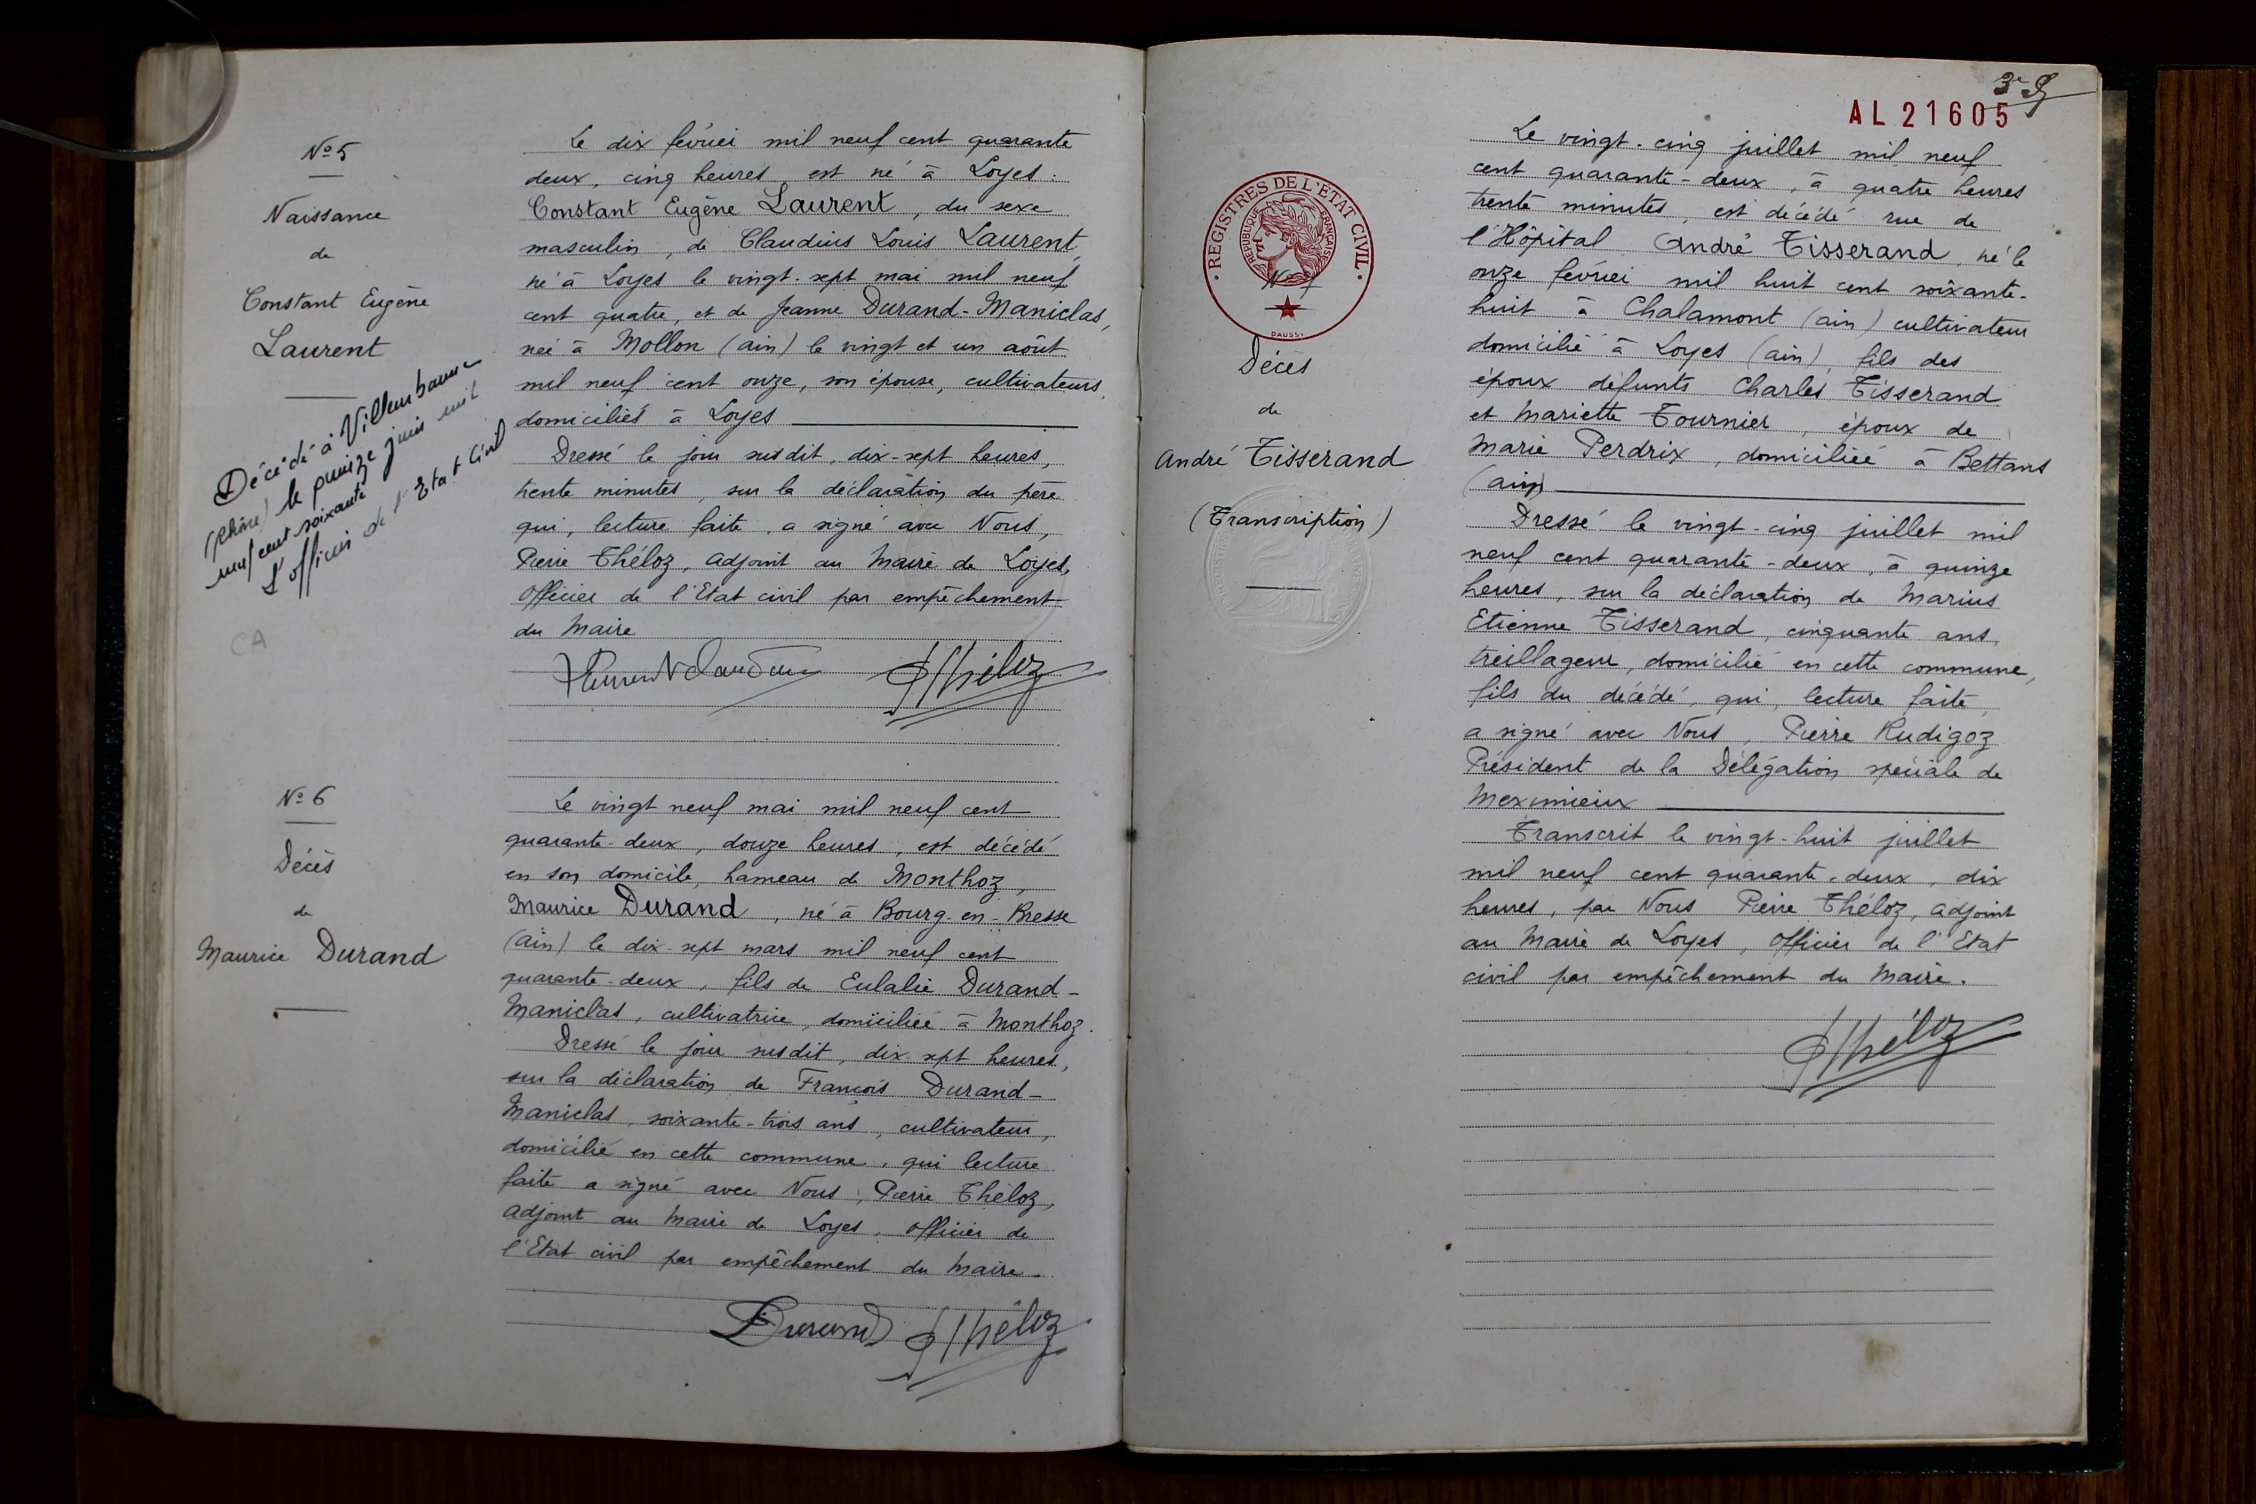 Nº 5
Naissance
de
Constant Eugène
Laurent
Décédé à Villeurbanne
(Rhône) le quinze juin mil
neuf cent soixante
L'officier de l'Etat Civil
CA
Le dix février mil neuf cent quarante
deux, cinq heures, est né à Loyes :
Constant Eugène Laurent, du sexe
masculin, de Claudius Louis Laurent,
né à Loyes le vingt-sept mai mil neuf
cent quatre, et de Jeanne Durand-Maniclas,
née à Mollon (ain) le vingt et un août
mil neuf cent onze, son épouse, cultivateurs,
domiciliés à Loyes
Dressé le jour susdit, dix-sept heures,
trente minutes, sur la déclaration du père
qui, lecture faite, a signé avec Nous,
Pierre Théloz, adjoint au Maire de Loyes,
Officier de l'Etat civil par empêchement
du Maire
PThéloz
Nº 6
Décès
de
Maurice Durand
Le vingt neuf mai mil neuf cent
quarante-deux, douze heures, est décédé
en son domicile, hameau de Monthoz,
Maurice Durand, né à Bourg-en-Bresse
(ain) le dix-sept mars mil neuf cent
quarante-deux, fils de Eulalie Durand-
Maniclas, cultivatrice, domiciliée à Monthoz.
Dressé le jour susdit, dix sept heures,
sur la déclaration de François Durand-
Maniclas, soixante-trois ans, cultivateur,
domicilié en cette commune, qui lecture
faite a signé avec Nous, Pierre Théloz,
adjoint au Maire de Loyes, officier de
l'Etat civil par empêchement du Maire.
Durand PThéloz
3e
AL 21605
REGISTRES DE L'ETAT CIVIL
REPUBLIQUE FRANÇAISE
Nº 7
DAUSSY
Décès
de
André Tisserand
(Transcription)
Le vingt-cinq juillet mil neuf
cent quarante-deux, à quatre heures
trente minutes, est décédé rue de
l'Hôpital André Tisserand, né le
onze février mil huit cent soixante-
huit à Chalamont (ain) cultivateur
domicilié à Loyes (ain), fils des
époux défunts Charles Tisserand
et Mariette Tournier, époux de
Marie Perdrix, domiciliée à Bettans
(ain)
Dressé le vingt-cinq juillet mil
neuf cent quarante-deux, à quinze
heures, sur la déclaration de Marius
Etienne Tisserand, cinquante ans,
treillageur, domicilié en cette commune,
fils du décédé, qui, lecture faite,
a signé avec Nous, Pierre Rudigoz
Président de la Délégation spéciale de
Meximieux
Transcrit le vingt-huit juillet
mil neuf cent quarante-deux, dix
heures, par Nous Pierre Théloz, adjoint
au Maire de Loyes, Officier de l'Etat
civil par empêchement du Maire.
PThéloz